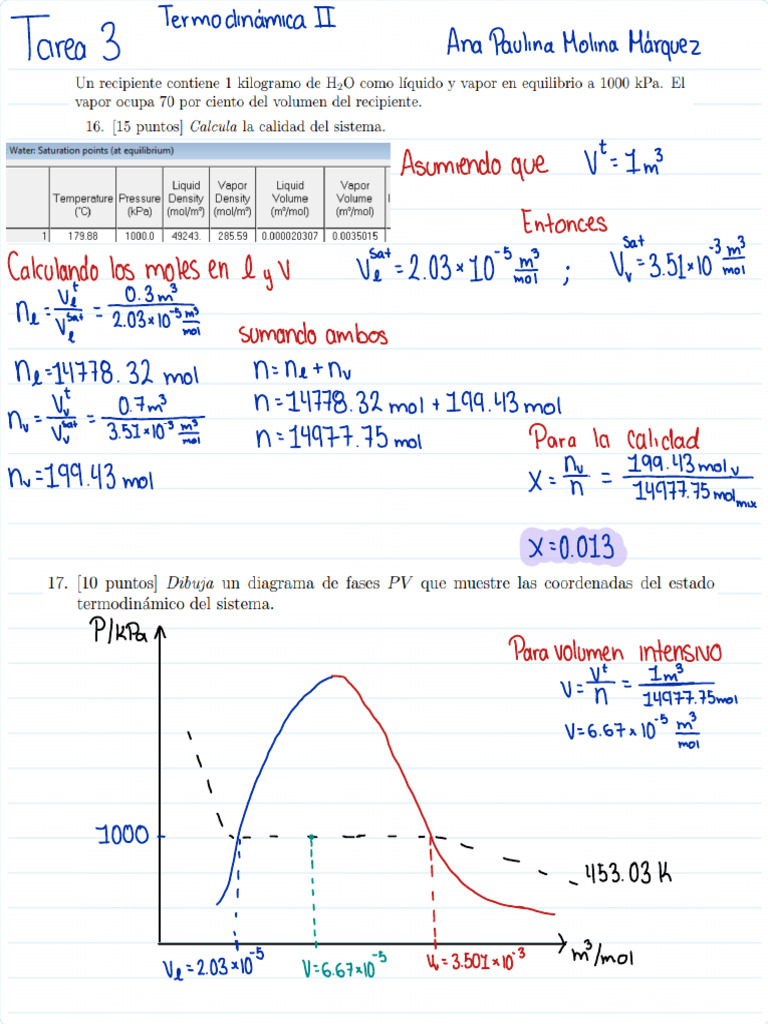 Tarea 3
Termodinámica II
Ana Paulina Molina Márquez
Un recipiente contiene 1 kilogramo de H₂O como líquido y vapor en equilibrio a 1000 kPa. El
vapor ocupa 70 por ciento del volumen del recipiente.
16. [15 puntos] Calcula la calidad del sistema.
Water: Saturation points (at equilibrium)
Temperature (°C) Pressure (kPa) Liquid Density (mol/m³) Vapor Density (mol/m³) Liquid Volume (m³/mol) Vapor Volume (m³/mol)
1 179.88 1000.0 49243. 285.59 0.000020307 0.0035015
Asumiendo que Vᵗ = 1m³
Entonces
Vₗ^Sat = 2.03×10⁻⁵ m³/mol ; Vᵥ^Sat = 3.51×10⁻³ m³/mol
Calculando los moles en l y V
nₗ = Vₗᵗ/Vₗ^Sat = 0.3m³ / 2.03×10⁻⁵ m³/mol
nₗ = 14778.32 mol
nᵥ = Vᵥᵗ/Vᵥ^Sat = 0.7m³ / 3.51×10⁻³ m³/mol
nᵥ = 199.43 mol
sumando ambos
n = nₗ + nᵥ
n = 14778.32 mol + 199.43 mol
n = 14977.75 mol
Para la calidad
X = nᵥ/n = 199.43 molᵥ / 14977.75 mol mix
X = 0.013
17. [10 puntos] Dibuja un diagrama de fases PV que muestre las coordenadas del estado
termodinámico del sistema.
P/kPa
Para volumen intensivo
V = Vᵗ/n = 1m³ / 14977.75 mol
V = 6.67×10⁻⁵ m³/mol
1000
453.03 K
Vₗ = 2.03×10⁻⁵
V = 6.67×10⁻⁵
Vᵥ = 3.501×10⁻³
m³/mol